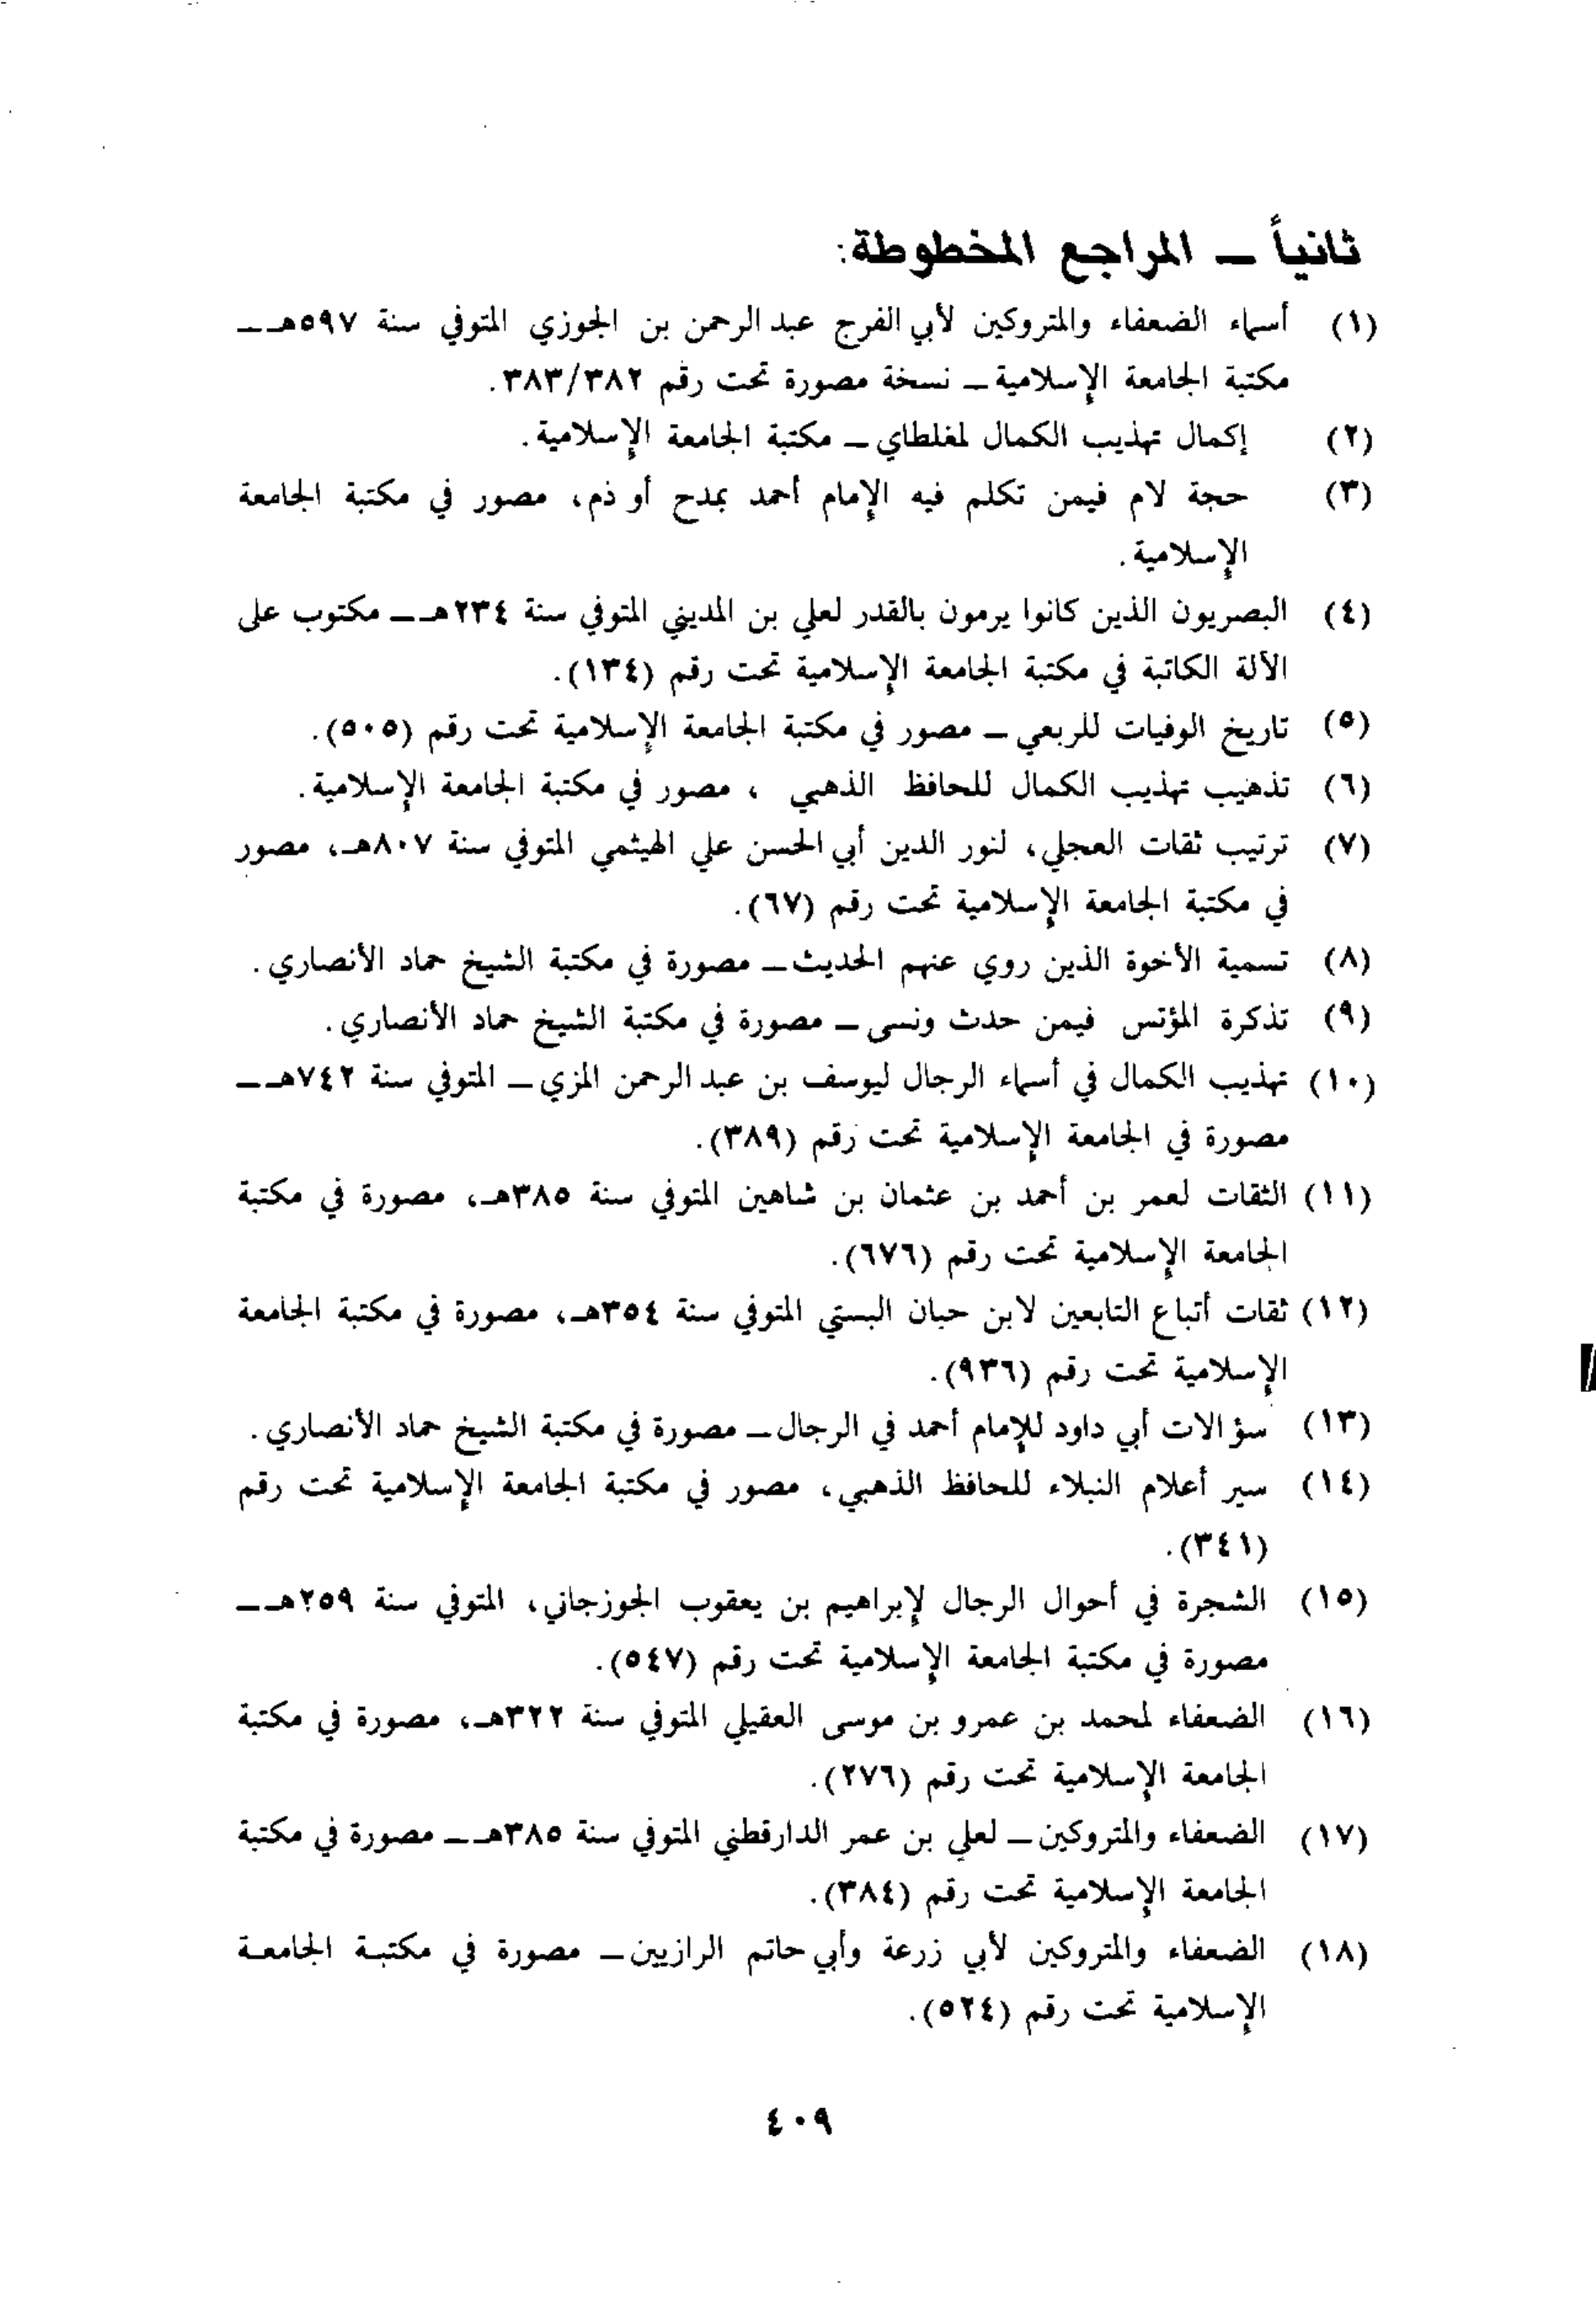 ثانياً ــ المراجع المخطوطة:
(١) أسماء الضعفاء والمتروكين لأبي الفرج عبد الرحمن بن الجوزي المتوفي سنة ٥٩٧هـ ــ
مكتبة الجامعة الإسلامية ــ نسخة مصورة تحت رقم ٣٨٣/٣٨٢.
(٢) إكمال تهذيب الكمال لمغلطاي ــ مكتبة الجامعة الإسلامية.
(٣) حجة لام فيمن تكلم فيه الإمام أحمد بمدح أو ذم، مصور في مكتبة الجامعة
الإسلامية.
(٤) البصريون الذين كانوا يرمون بالقدر لعلي بن المديني المتوفي سنة ٢٣٤هـ ــ مكتوب على
الألة الكاتبة في مكتبة الجامعة الإسلامية تحت رقم (١٣٤).
(٥) تاريخ الوفيات للربعي ــ مصور في مكتبة الجامعة الإسلامية تحت رقم (٥٠٥).
(٦) تذهيب تهذيب الكمال للحافظ الذهبي ، مصور في مكتبة الجامعة الإسلامية.
(٧) ترتيب ثقات العجلي، لنور الدين أبي الحسن علي الهيثمي المتوفي سنة ٨٠٧هـ، مصور
في مكتبة الجامعة الإسلامية تحت رقم (٦٧).
(٨) تسمية الأخوة الذين روي عنهم الحديث ــ مصورة في مكتبة الشيخ حماد الأنصاري.
(٩) تذكرة المؤتس فيمن حدث ونسى ــ مصورة في مكتبة الشيخ حماد الأنصاري.
(١٠) تهذيب الكمال في أسماء الرجال ليوسف بن عبد الرحمن المزي ــ المتوفي سنة ٧٤٢هـ ــ
مصورة في الجامعة الإسلامية تحت رقم (٣٨٩).
(١١) الثقات لعمر بن أحمد بن عثمان بن شاهين المتوفي سنة ٣٨٥هـ، مصورة في مكتبة
الجامعة الإسلامية تحت رقم (٦٧٦).
(١٢) ثقات أتباع التابعين لابن حبان البستي المتوفي سنة ٣٥٤هـ، مصورة في مكتبة الجامعة
الإسلامية تحت رقم (٩٣٦).
(١٣) سؤالات أبي داود للإمام أحمد في الرجال ــ مصورة في مكتبة الشيخ حماد الأنصاري.
(١٤) سير أعلام النبلاء للحافظ الذهبي، مصور في مكتبة الجامعة الإسلامية تحت رقم
(٣٤١).
(١٥) الشجرة في أحوال الرجال لإبراهيم بن يعقوب الجوزجاني، المتوفي سنة ٢٥٩هـ ــ
مصورة في مكتبة الجامعة الإسلامية تحت رقم (٥٤٧).
(١٦) الضعفاء لمحمد بن عمرو بن موسى العقيلي المتوفي سنة ٣٢٢هـ، مصورة في مكتبة
الجامعة الإسلامية تحت رقم (٢٧٦).
(١٧) الضعفاء والمتروكين ــ لعلي بن عمر الدارقطني المتوفي سنة ٣٨٥هـ ــ مصورة في مكتبة
الجامعة الإسلامية تحت رقم (٣٨٤).
(١٨) الضعفاء والمتروكين لأبي زرعة وأبي حاتم الرازيين ــ مصورة في مكتبة الجامعة
الإسلامية تحت رقم (٥٢٤).
٤٠٩